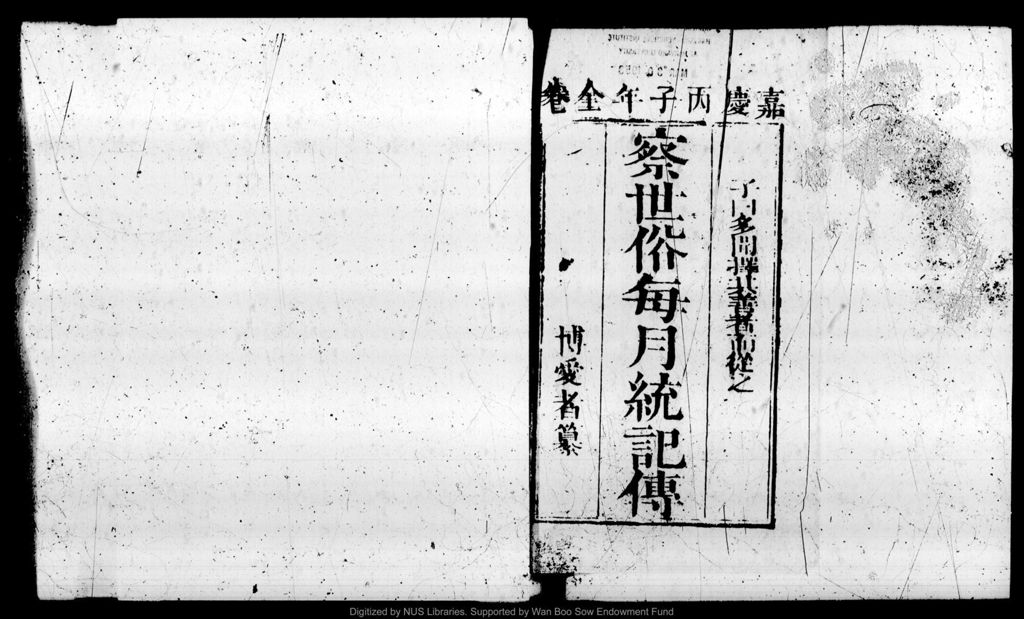 嘉慶丙子年全卷
子曰多聞擇其善者而從之
察世俗每月統記傳
博愛者纂
Digitized by NUS Libraries. Supported by Wan Boo Sow Endowment Fund